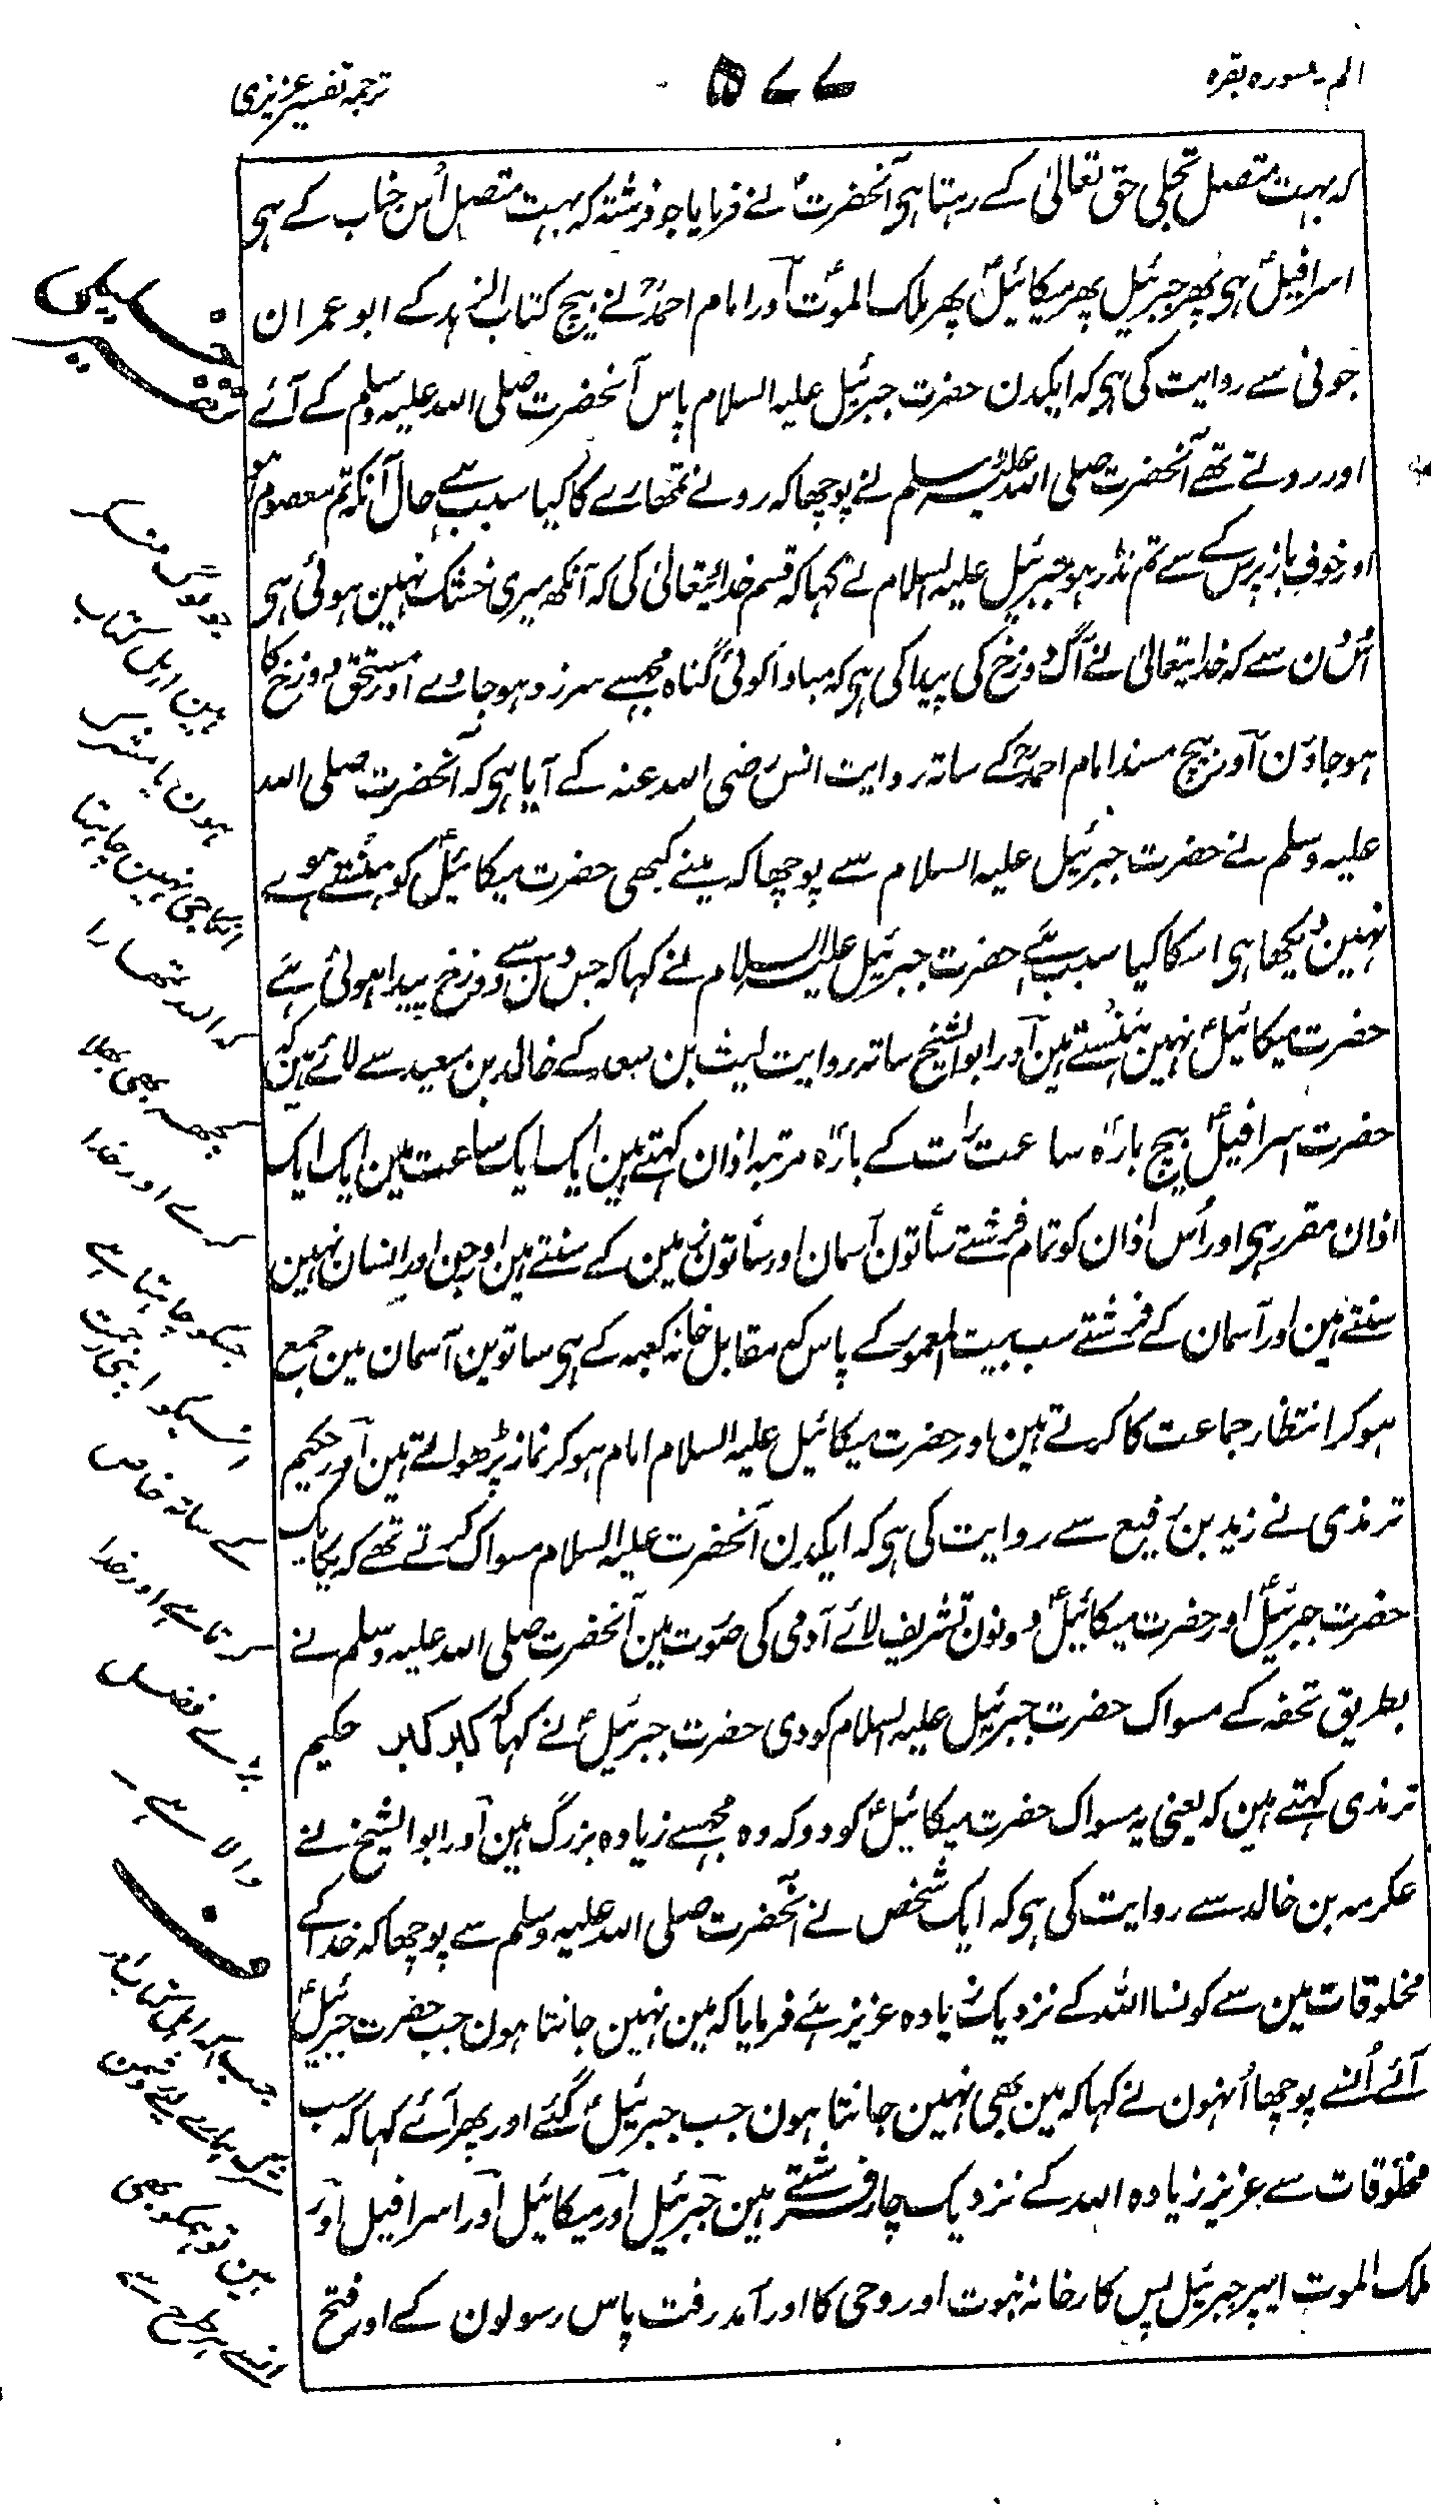 الم۔ سورہ بقرہ
۵۷۷
ترجمہ تفسیر عزیزی
کہ بہت متصل تجلی حق تعالیٰ کے رہتا ہی آنحضرتؐ نے فرمایا جو فرشتہ کہ بہت متصل اُس جناب کے ہی
اسرافیلؑ ہی پھر جبرئیل پھر میکائیلؑ پھر ملک الموتؑ اور امام احمدؒ نے بیچ کتاب الزہد کے ابو عمران
جونی سے روایت کی ہی کہ ایکدن حضرت جبرئیل علیہ السلام پاس آنحضرت صلی اللہ علیہ وسلم کے آئے
اور روتے تھے آنحضرت صلی اللہ علیہ وسلم نے پوچھا کہ رونے تمھارے کا کیا سبب ہے حال آنکہ تم معصوم ہو
اور خوف باز پرس کے سے تم نڈر ہو جبرئیل علیہ السلام نے کہا کہ قسم خدایتعالیٰ کی کہ آنکھ میری خشک نہین ہوئی ہی
اُس دن سے کہ خدایتعالیٰ نے آگ دوزخ کی پیدا کی ہی کہ مبادا کوئی گناہ مجہسے سرزد ہو جاوے اور مستحق دوزخ کا
ہو جاوٗن اور بیچ مسند امام احمدؒ کے ساتہ روایت انس رضی اللہ عنہ کے آیا ہی کہ آنحضرت صلی اللہ
علیہ وسلم نے حضرت جبرئیل علیہ السلام سے پوچھا کہ مینے کبھی حضرت میکائیلؑ کو ہنستے ہوے
نہین دیکھا ہی اسکا کیا سبب ہے حضرت جبرئیل علیہ السلام نے کہا کہ جس دن سے دوزخ پیدا ہوئی ہے
حضرت میکائیلؑ نہین ہنستے ہین اور ابو الشیخ ساتہ روایت لیث بن سعد کے خالد بن سعید سے لائے ہین کہ
حضرت اسرافیلؑ بیچ بارہ ساعت رات کے بارہ مرتبہ اذان کہتے ہین ایک ایک ساعت مین ایک ایک
اذان مقرر ہی اور اُس اذان کو تمام فرشتے ساتون آسمان اور ساتون زمین کے سنتے ہین اور جن اور انسان نہین
سنتے ہین اور آسمان کے فرشتے سب بیت المعمور کے پاس کہ مقابل خانہ کعبہ کے ہی ساتوین آسمان مین جمع
ہو کر انتظار جماعت کا کرتے ہین اور حضرت میکائیل علیہ السلام امام ہو کر نماز پڑھواتے ہین اور حکیم
ترمذی نے زید بن رفیع سے روایت کی ہی کہ ایکدن آنحضرت علیہ السلام مسواک کرتے تھے کہ یکایک
حضرت جبرئیلؑ اور حضرت میکائیلؑ دونون تشریف لائے آدمی کی صورت مین آنحضرت صلی اللہ علیہ وسلم نے
بطریق تحفہ کے مسواک حضرت جبرئیل علیہ السلام کو دی حضرت جبرئیلؑ نے کہا کہ کبر کبر حکیم
ترمذی کہتے ہین کہ یعنی یہ مسواک حضرت میکائیلؑ کو دو کہ وہ مجہسے زیادہ بزرگ ہین اور ابو الشیخ نے
عکرمہ بن خالد سے روایت کی ہی کہ ایک شخص نے آنحضرت صلی اللہ علیہ وسلم سے پوچھا کہ خدا کے
مخلوقات مین سے کونسا اللہ کے نزدیک زیادہ عزیز ہے فرمایا کہ مین نہین جانتا ہون جب حضرت جبرئیلؑ
آئے اُنسے پوچھا اُنہون نے کہا کہ مین بھی نہین جانتا ہون جب جبرئیلؑ گئے اور پھر آئے کہا کہ سب
مخلوقات سے عزیز زیادہ اللہ کے نزدیک چار فرشتے ہین جبرئیل اور میکائیل اور اسرافیل اور
ملک الموت ایپر جبرئیل پس کارخانہ نبوت اور وحی کا اور آمد رفت پاس رسولون کے اور فتح
تفسیر
جو لوگ منکر
ہین اہل کتاب
ہون یا مشرک
انکا جی نہین چاہتا
کہ اللہ تمھارا
کچھہ بھی بھلا
کرے اور خدا
جسکو چاہتا ہے
اپنی رحمت
کے ساتہ خاص
کرتا ہے اور خدا
بڑے فضل
والا ہے۔
ف
جب کہ اہل کتاب اور